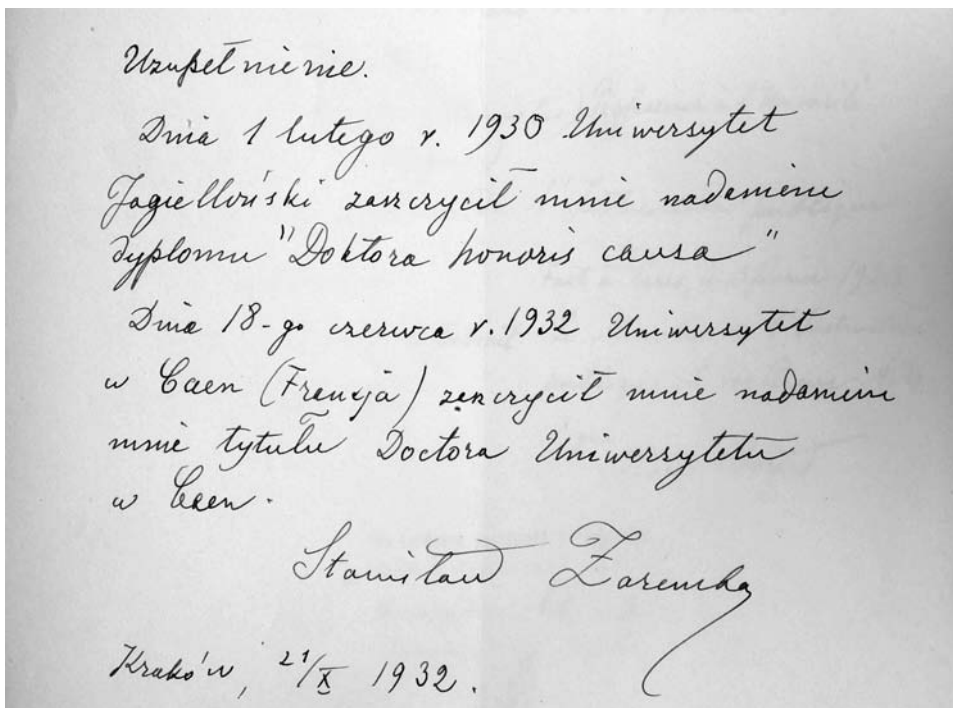 Uzupełnienie.
Dnia 1 lutego r. 1930 Uniwersytet
Jagielloński zaszczycił mnie nadaniem
dyplomu "Doktora honoris causa"
Dnia 18-go czerwca r. 1932 Uniwersytet
w Caen (Francja) zaszczycił mnie nadaniem
mnie tytułu Doctora Uniwersytetu
w Caen.
Stanisław Zaremba
Kraków, 21/X 1932.